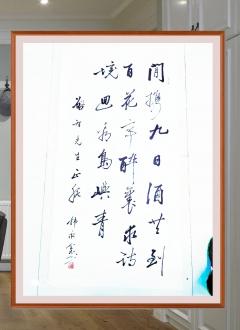 間攜九日酒共到
百花亭醉裏求詩
境迴看島嶼青
先生正